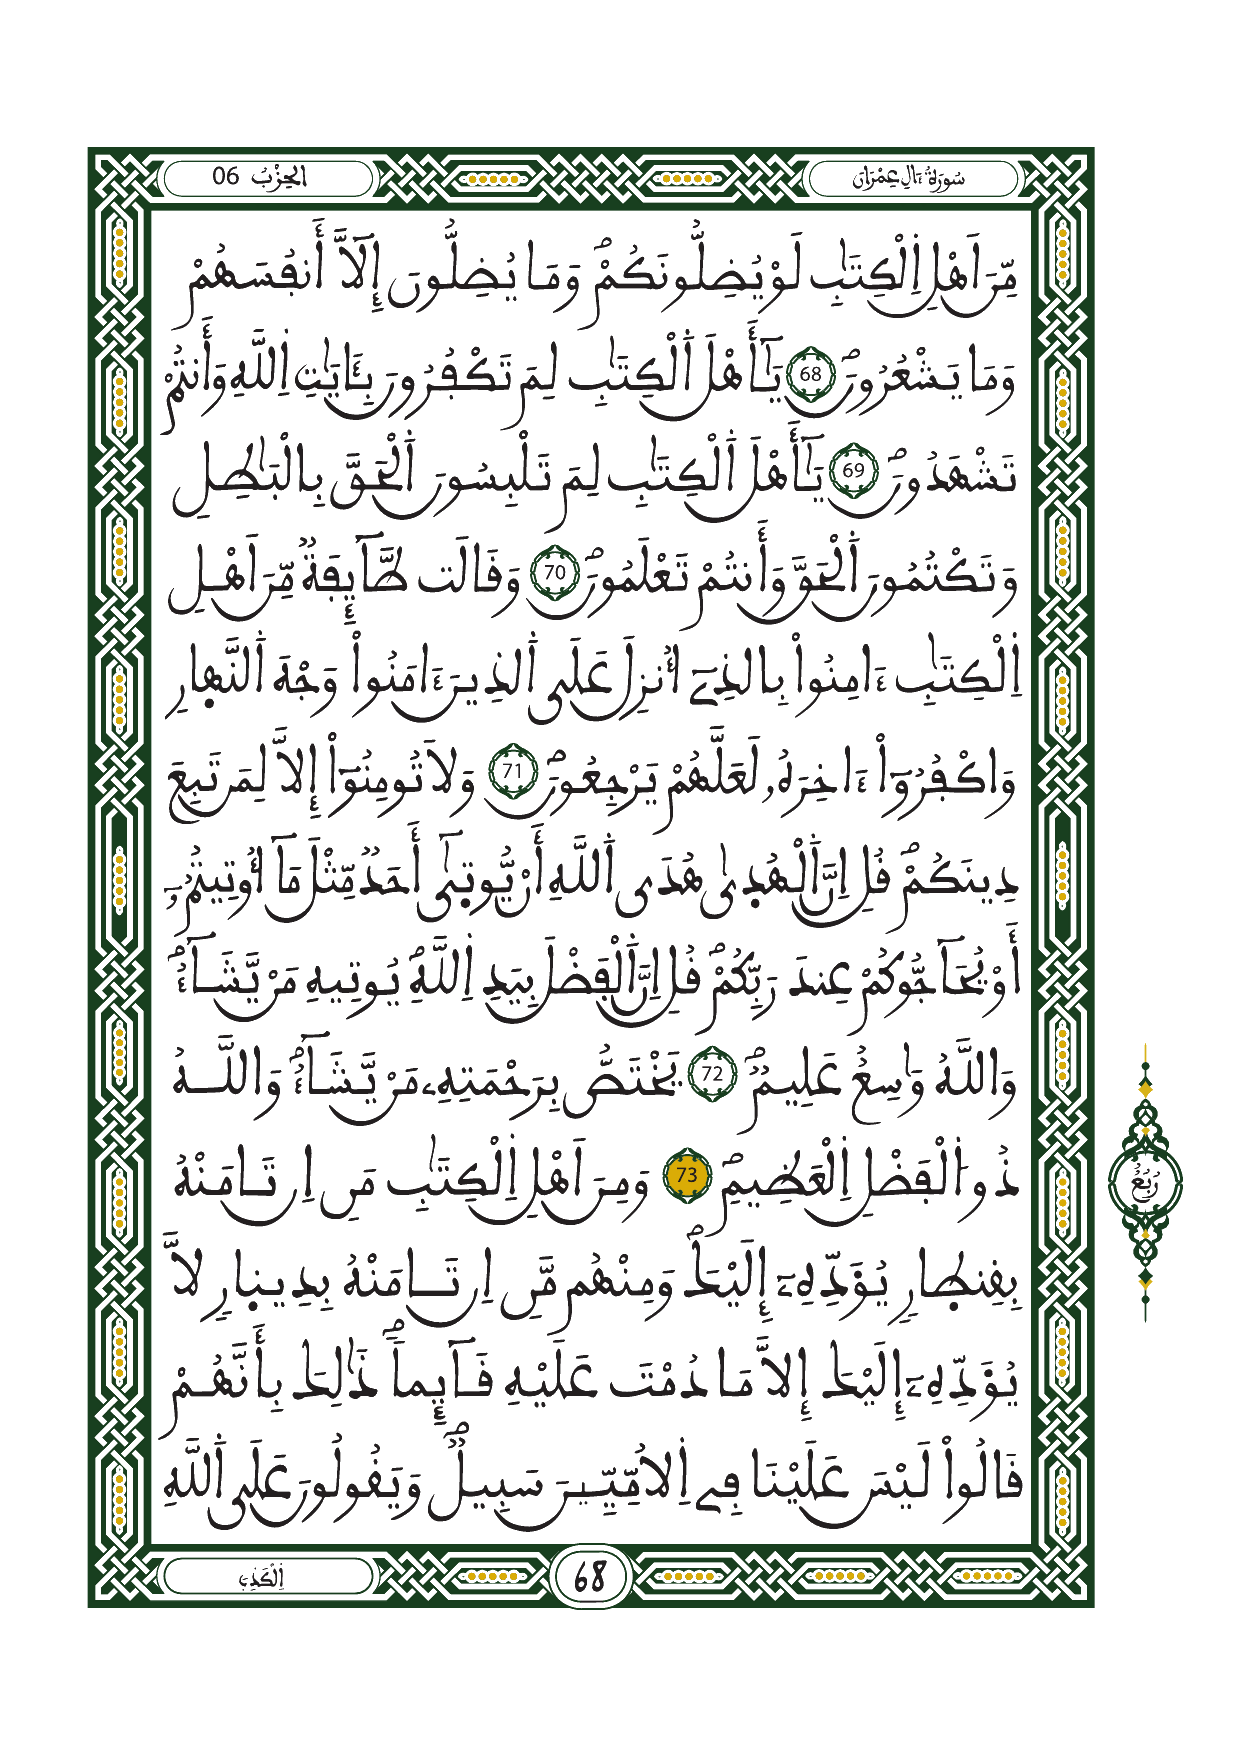 سُورَةُ ءَالِ عِمْرَانَ
الحِزْبُ 06
مِّنَ اَهْلِ اِ۬لْكِتَٰبِ لَوْ يُضِلُّونَكُمْ وَمَا يُضِلُّونَ إِلَّآ أَنفُسَهُمْ
وَمَا يَشْعُرُونَ 68 يَٰٓأَهْلَ اَ۬لْكِتَٰبِ لِمَ تَكْفُرُونَ بِـَٔايَٰتِ اِ۬للَّهِ وَأَنتُمْ
تَشْهَدُونَ 69 يَٰٓأَهْلَ اَ۬لْكِتَٰبِ لِمَ تَلْبِسُونَ اَ۬لْحَقَّ بِالْبَٰطِلِ
وَتَكْتُمُونَ اَ۬لْحَقَّ وَأَنتُمْ تَعْلَمُونَ 70 وَقَالَت طَّآئِفَةٌ مِّنَ اَهْلِ
اِ۬لْكِتَٰبِ ءَامِنُواْ بِالذِےٓ أُنزِلَ عَلَى اَ۬لذِينَ ءَامَنُواْ وَجْهَ اَ۬لنَّهارِ
وَاكْفُرُوٓاْ ءَاخِرَهُۥ لَعَلَّهُمْ يَرْجِعُونَ 71 وَلَا تُومِنُوٓاْ إِلَّا لِمَن تَبِعَ
دِينَكُمْ قُلِ اِنَّ اَ۬لْهُد۪يٰ هُدَى اَ۬للَّهِ أَنْ يُّوت۪يٰٓ أَحَدٌ مِّثْلَ مَآ أُوتِيتُمُۥٓ
أَوْ يُحَآجُّوكُمْ عِندَ رَبِّكُمْ قُلِ اِنَّ اَ۬لْفَضْلَ بِيَدِ اِ۬للَّهِ يُوتِيهِ مَنْ يَّشَآءُ
وَاللَّهُ وَٰسِعٌ عَلِيمٌ 72 يَخْتَصُّ بِرَحْمَتِهِۦ مَنْ يَّشَآءُ وَاللَّهُ
ذُو اُ۬لْفَضْلِ اِ۬لْعَظِيمِ 73 وَمِنَ اَهْلِ اِ۬لْكِتَٰبِ مَنِ اِن تَامَنْهُ
بِقِنط۪ارٍ يُؤَدِّهِۦٓ إِلَيْكَ وَمِنْهُم مَّنِ اِن تَامَنْهُ بِدِين۪ارٍ لَّا
يُؤَدِّهِۦٓ إِلَيْكَ إِلَّا مَا دُمْتَ عَلَيْهِ قَآئِماً ذَٰلِكَ بِأَنَّهُمْ
قَالُواْ لَيْسَ عَلَيْنَا فِے اِ۬لُامِّيِّـۧنَ سَبِيلٌ وَيَقُولُونَ عَلَى اَ۬للَّهِ
رُبُعُ
68
اَ۬لْكَذِبَ